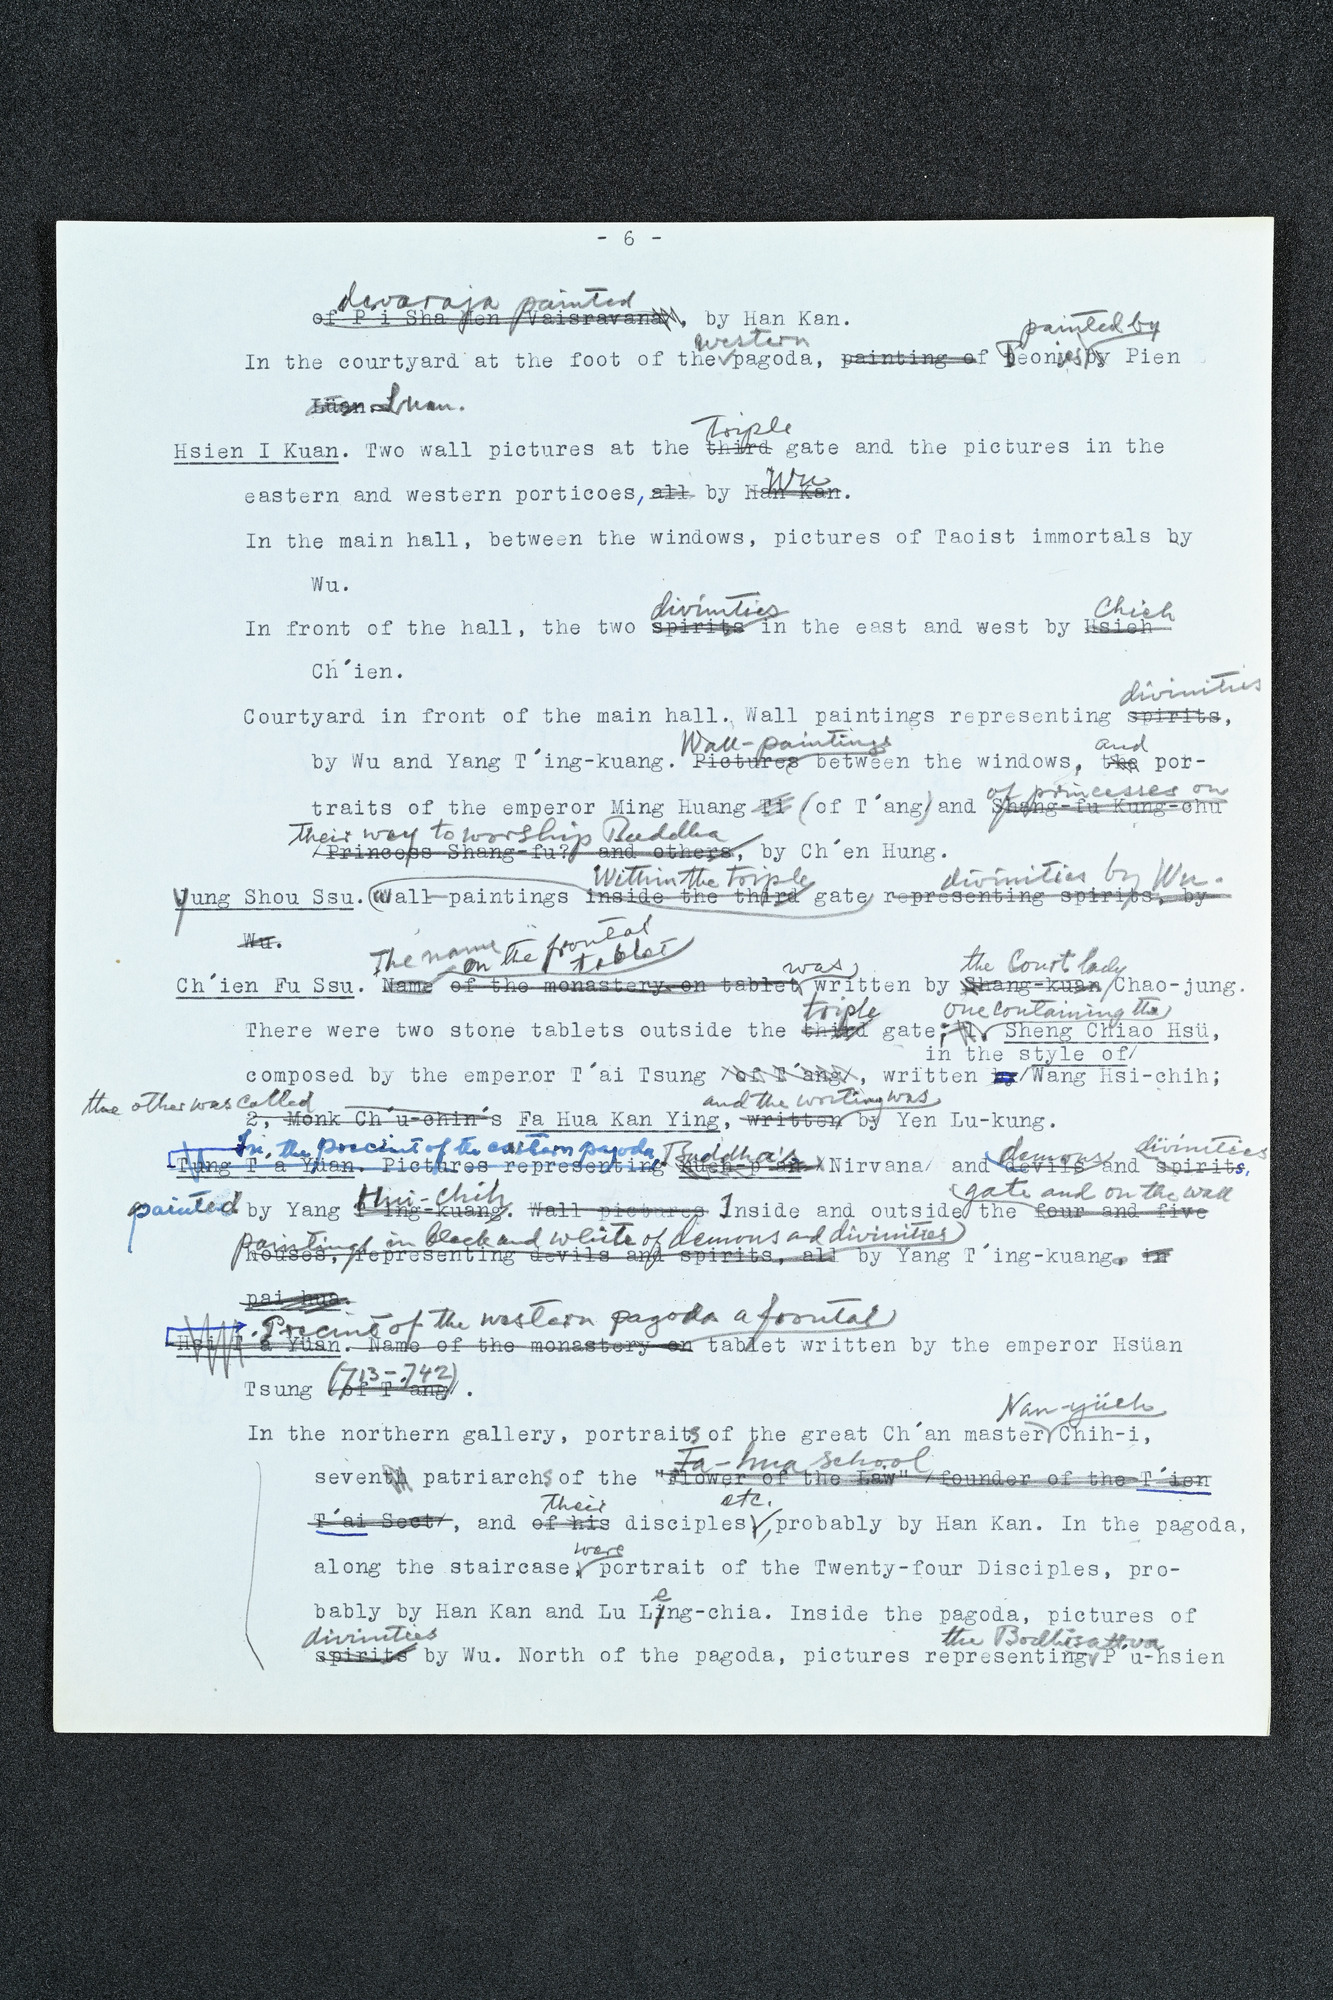 - 6 -
devaraja painted
of P i Sha Men /Vaisravana/, by Han Kan.
western painted by
In the courtyard at the foot of the pagoda, painting of Peonies by Pien
Lüan. Luan.
Triple
Hsien I Kuan. Two wall pictures at the third gate and the pictures in the
Wu
eastern and western porticoes, all by Han Kan.
In the main hall, between the windows, pictures of Taoist immortals by
Wu.
divinities Chieh
In front of the hall, the two spirits in the east and west by Hsieh
Ch´ien.
divinities
Courtyard in front of the main hall. Wall paintings representing spirits,
Wall-paintings and
by Wu and Yang T´ing-kuang. Pictures between the windows, the por-
of princesses on
traits of the emperor Ming Huang Ti (of T´ang) and Shang-fu Kung-chu
their way to worship Buddha
/Princess Shang-fu?/ and others, by Ch´en Hung.
Within the triple divinities by Wu.
Yung Shou Ssu. Wall-paintings inside the third gate representing spirits, by
Wu.
The name on the frontal tablet was the Court lady
Ch´ien Fu Ssu. Name of the monastery on tablet written by Shang-kuan Chao-jung.
triple one containing the
There were two stone tablets outside the third gate; 1, Sheng Chiao Hsü,
in the style of/
composed by the emperor T´ai Tsung /of T´ang/, written by/Wang Hsi-chih;
the other was called and the writing was
2, Monk Ch´u-chin´s Fa Hua Kan Ying, written by Yen Lu-kung.
In the precinct of the eastern pagoda Buddha's demons divinities
Tung T´a Yüan. Pictures representing Nirvana/ and devils and spirits,
Hui-chih gate and on the wall
painted by Yang T´ing-kuang. Wall pictures Inside and outside the four and five
paintings in black and white of demons and divinities
houses, representing devils and spirits, all by Yang T´ing-kuang. in
pai hua.
Precinct of the western pagoda a frontal
Hsi T´a Yüan. Name of the monastery on tablet written by the emperor Hsüan
(713-742)
Tsung /of T´ang/.
Nan-yüeh
In the northern gallery, portraits of the great Ch´an master Chih-i,
Fa-hua school
seventh patriarchs of the "Flower of the Law" /founder of the T´ien
their etc.
T´ai Sect/, and of his disciples, probably by Han Kan. In the pagoda,
were
along the staircase, portrait of the Twenty-four Disciples, pro-
e
bably by Han Kan and Lu Ling-chia. Inside the pagoda, pictures of
divinities the Bodhisattva
spirits by Wu. North of the pagoda, pictures representing P´u-hsien